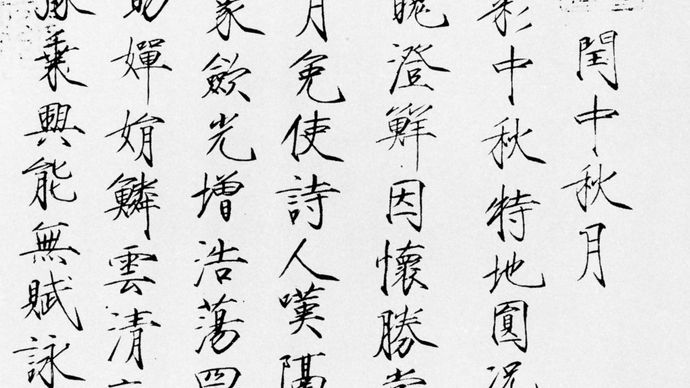 閏中秋月
彩中秋特地圓況
魄澄鮮因懷勝賞
月免使詩人嘆隔
象歛光增浩蕩四
助嬋娟鱗雲清
豫乗興能無賦詠